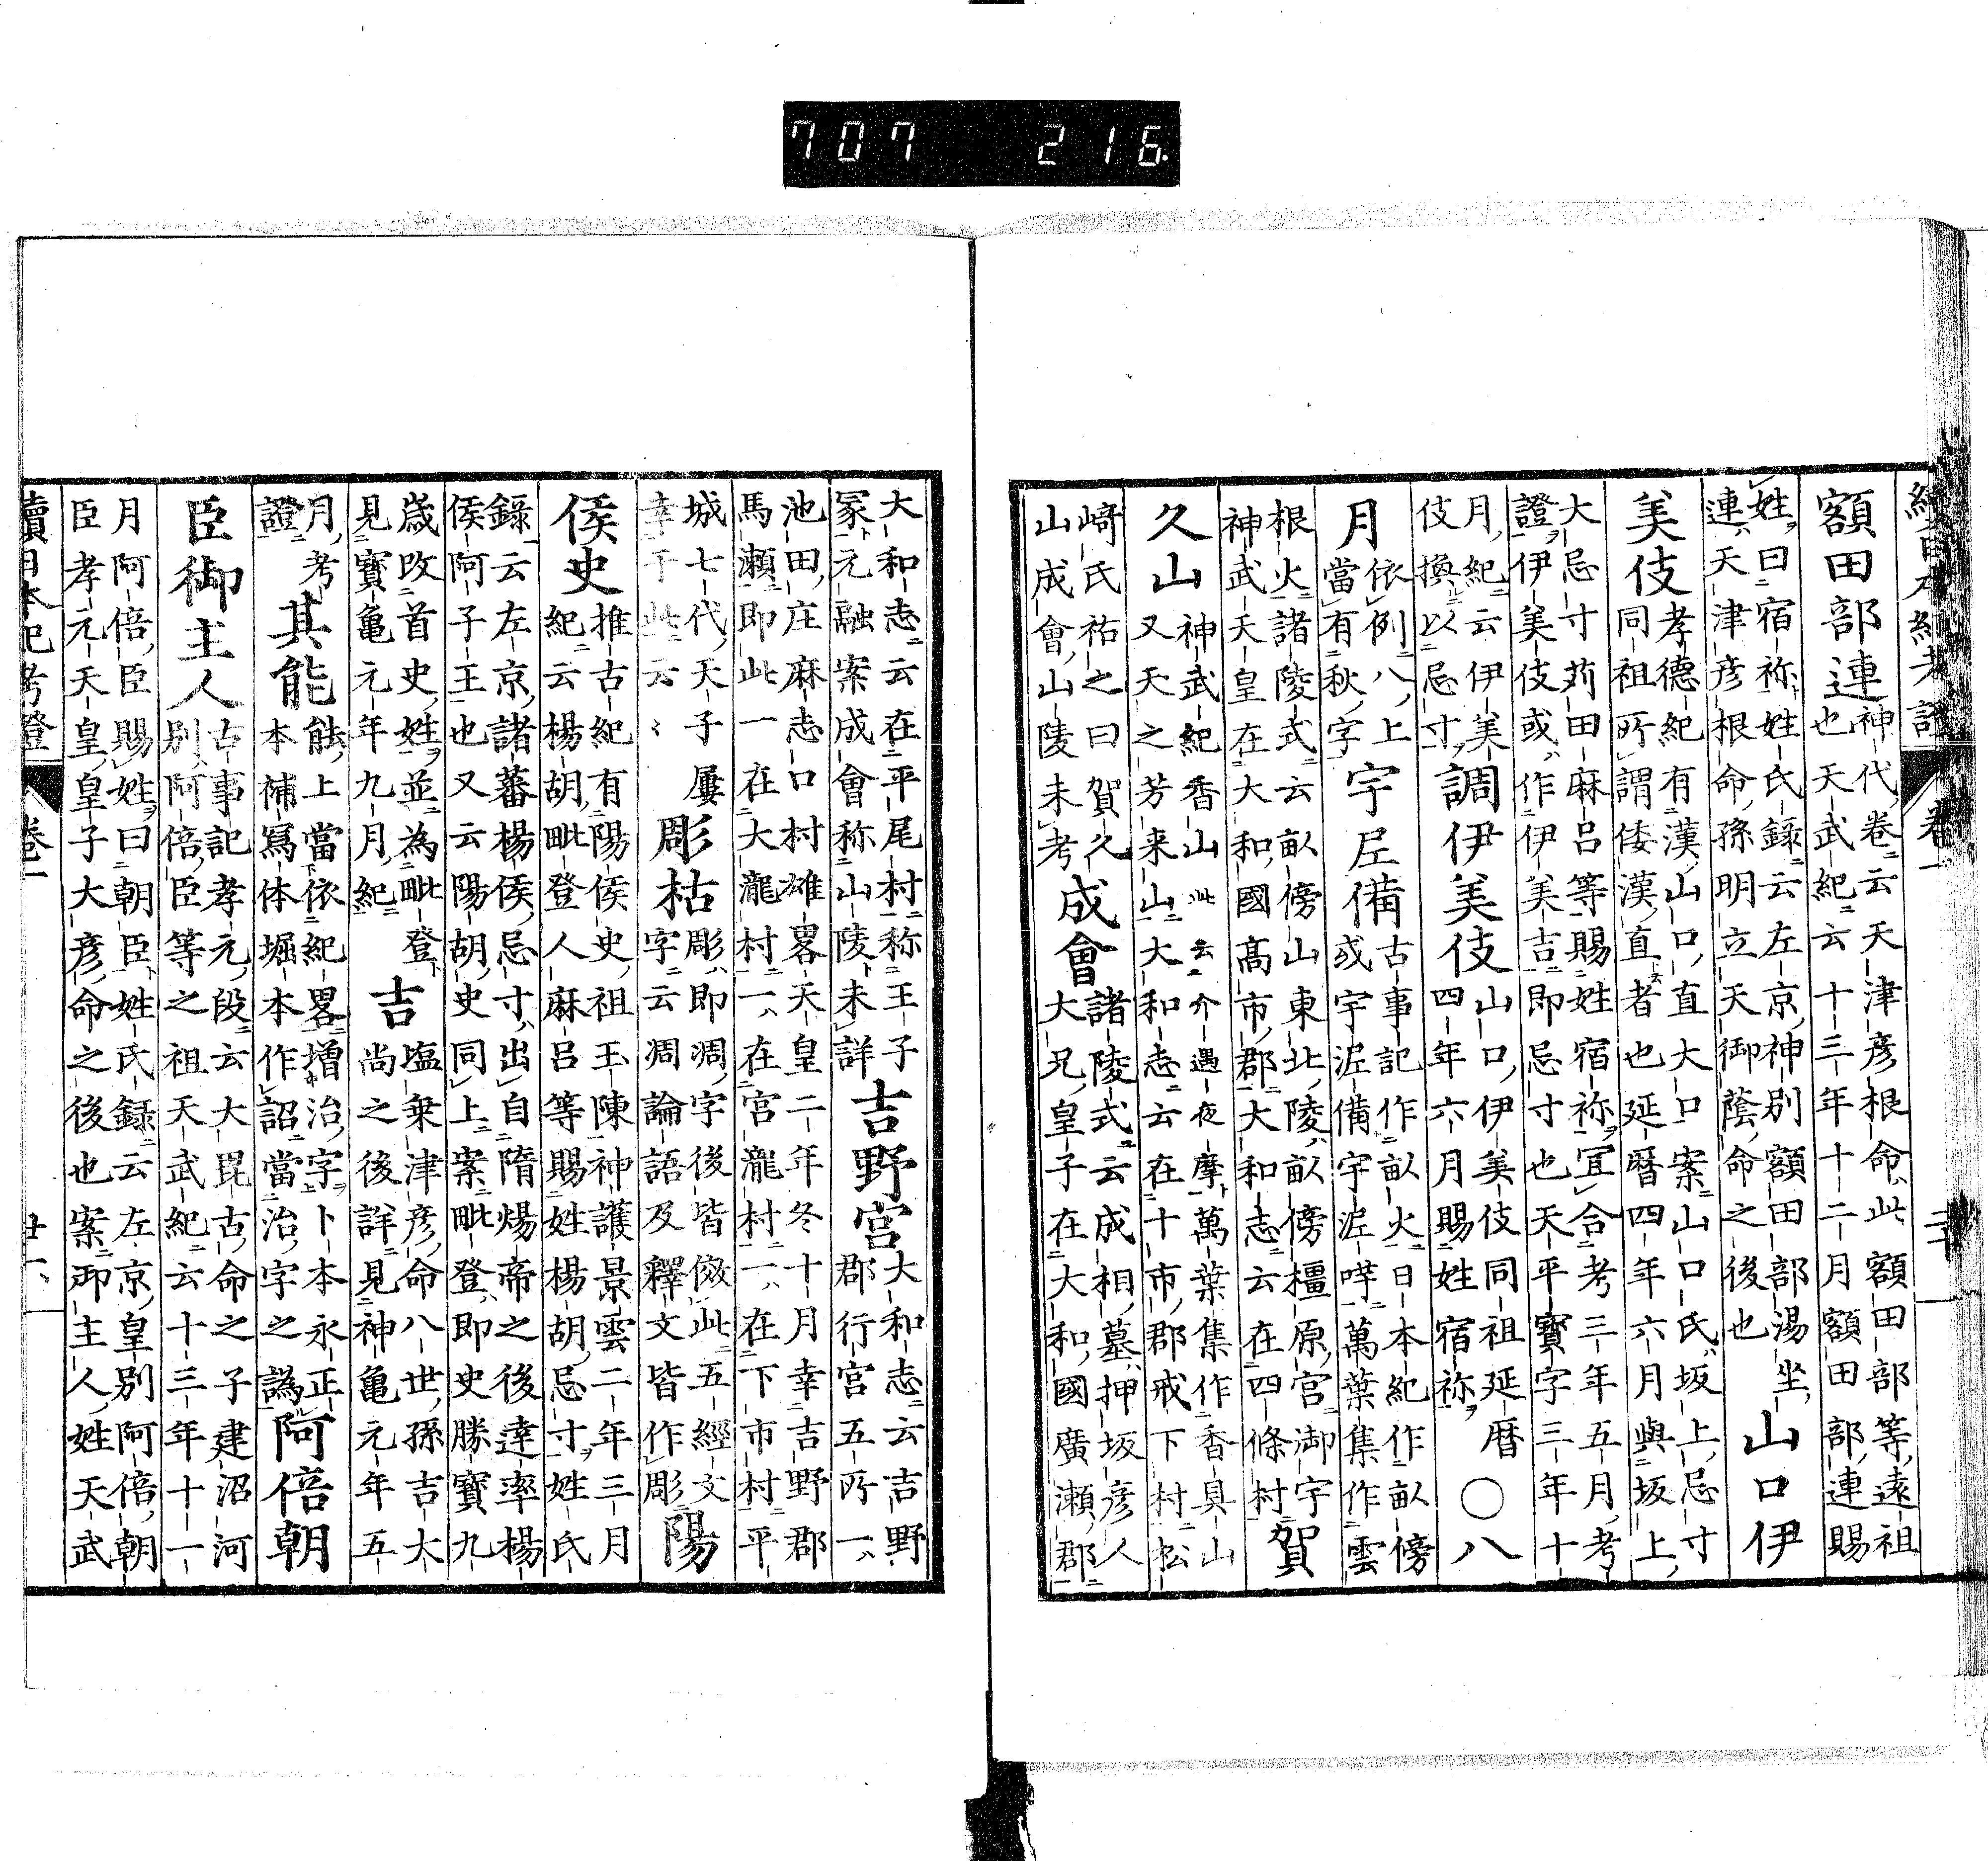 707 216
續日本紀考證 卷一 二十
額田部連神代卷云天津彦根命此額田部等遠祖
也天武紀云十三年十二月額田部連賜
姓曰宿祢姓氏錄云左京神別額田部湯坐
連天津彦根命孫明立天御蔭命之後也山口伊
美伎孝德紀有漢山口直大口案山口氏坂上忌寸
同祖所謂倭漢直者也延暦四年六月與坂上
大忌寸苅田麻呂等賜姓宿祢宜合考三年五月考
證伊美伎或作伊美吉即忌寸也天平寶字三年十
月紀云伊美
伎換以忌寸調伊美伎山口伊美伎同祖延暦
四年六月賜姓宿祢○八
月依例八上
當有秋字宇尼備古事記作畝火日本紀作畝傍
或宇泥備宇泥㖸萬葉集作雲
根火諸陵式云畝傍山東北陵畝傍橿原宮御宇
神武天皇在大和國高市郡大和志云在四條村賀
久山神武紀香山此云介遇夜摩萬葉集作香具山
又天之芳来山大和志云在十市郡戒下村松
﨑氏祐之曰賀久
山成會山陵未考成會諸陵式云成相墓押坂彦人
大兄皇子在大和國廣瀬郡
大和志云在平尾村称王子
冢元融案成會称山陵未詳吉野宮大和志云吉野
郡行宮五所一
池田庄麻志口村雄畧天皇二年冬十月幸吉野郡
馬瀬即此一在大瀧村一在宮瀧村一在下市村平
城七代天子屢
幸于此云〻彫枯彫即凋字後皆倣此五經文
字云凋論語及釋文皆作彫陽
侯史推古紀有陽侯史祖玉陳神護景雲二年三月
紀云楊胡毗登人麻呂等賜姓楊胡忌寸姓氏
錄云左京諸蕃楊侯忌寸出自隋煬帝之後達率楊
侯阿子王也又云陽胡史同上案毗登即史勝寶九
歳改首史姓並為毗登
見寶亀元年九月紀吉塩乗津彦命八世孫吉大
尚之後詳見神亀元年五
月考
證其能能上當依紀畧増治字卜本永正
本補寫体堀本作詔當治字之譌阿倍朝
臣御主人古事記孝元段云大毘古命之子建沼河
別阿倍臣等之祖天武紀云十三年十一
月阿倍臣賜姓曰朝臣姓氏録云左京皇別阿倍朝
臣孝元天皇皇子大彦命之後也案御主人姓天武
續日本紀考證 卷一 廿一